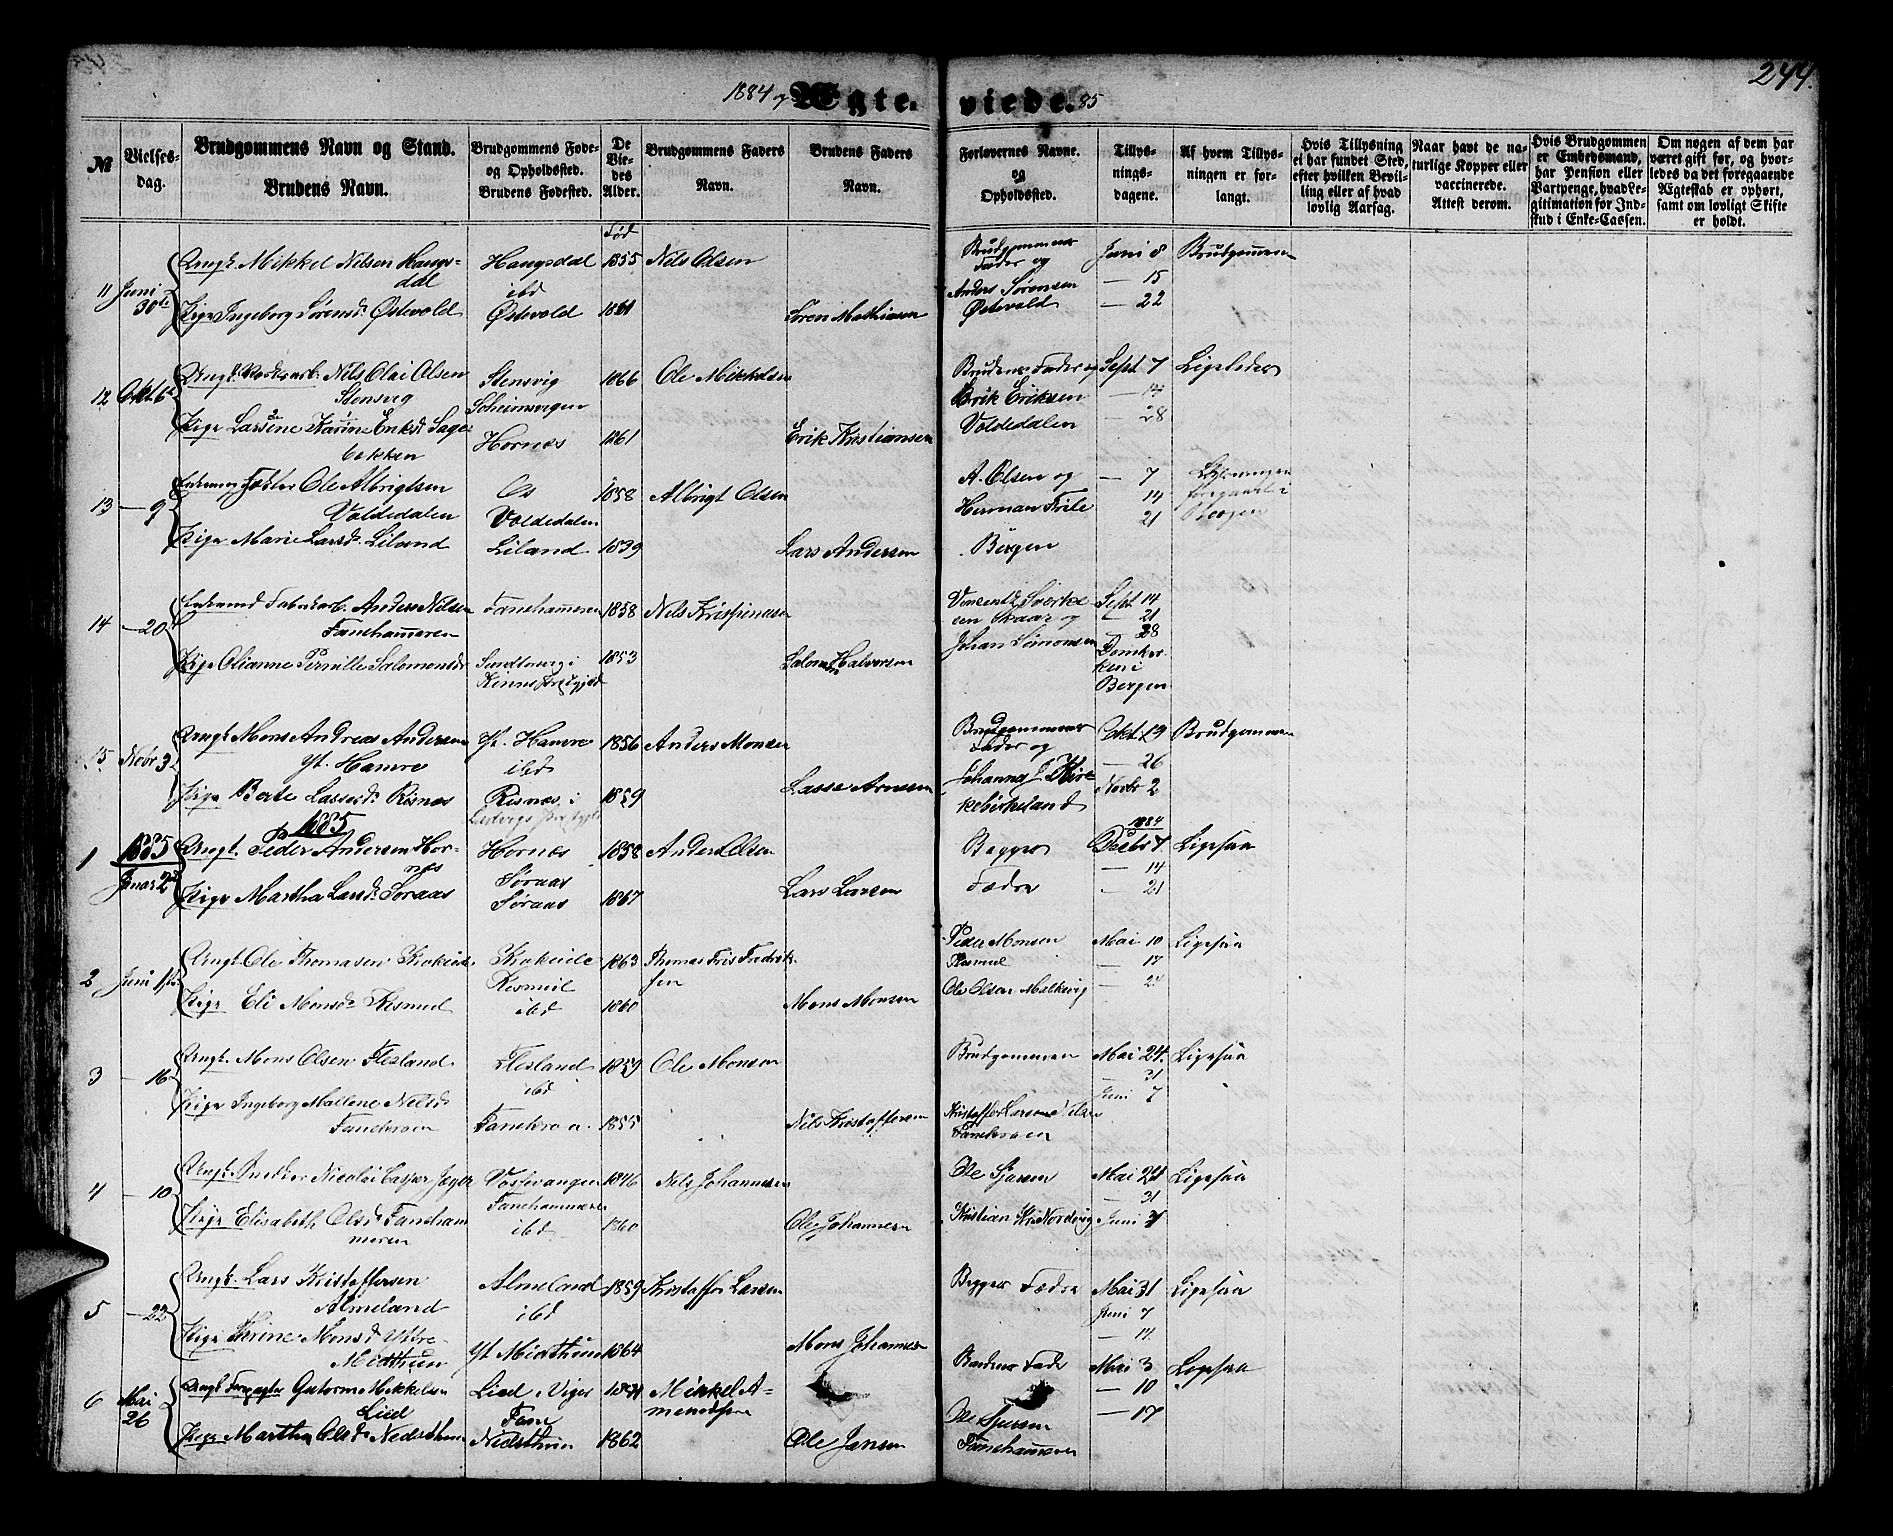 244.
1884 og Ægteviede. 85
№
Vielses-
dag.
Brudgommens Navn og Stand.
Brudens Navn.
Brudgommens Føde-
og Opholdssted.
Brudens Fødested.
De
Vie-
des
Alder.
Brudgommens Faders
Navn.
Brudens Faders
Navn.
Forlovernes Navne.
og
Opholdssted.
Tillys-
nings-
dagene.
Af hvem Tillys-
ningen er for-
langt.
Hvis Tillysning
ei har fundet Sted,
efter hvilken Bevil-
ling eller af hvad
lovlig Aarsag.
Naar havt de na-
turlige Kopper eller
vaccinerede.
Attest derom.
Hvis Brudgommen
er Embedsmand,
har Pension eller
Vartpenge, hvad Le-
gitimation for Ind-
skud i Enke-Cassen.
Om nogen af dem har
været gift før, og hvor-
ledes da det foregaaende
Ægteskab er ophørt,
samt om lovligt Skifte
er holdt.
Fød
11 Juni 30te
Ungk. Mikkel Nilsen Haugs-
dal
Pige Ingeborg Sørensd. Østevold
Haugsdal
ibd
Østevold
1855
1861
Nils Olsen
Søren Mathiasen
Brudgommens
Fader og
Anders Sørensen
Østevold
Juni 8
— 15
— 22
Brudgommen
12 Okt. 6te
Ungk. Nils Olai Olsen
Stensvig
Pige Larsine Karine Eriksd. Sage-
bakken
Stensvig
Solheimsvigen
Hornæs
1866
1861
Ole Mikkelsen
Erik Kristiansen
Brudens Fader og
Erik Eriksen
Voldedalen
Sept 7
— 14
— 28
Ligeledes
13 — 9
Enkemand Ole Albrigtsen
Voldedalen
Pige Marie Larsd. Liland
Os
Voldedalen
Liland
1858
1839
Albrigt Olsen
Lars Andersen
A. Olsen og
Herman Friele
Bergen
— 7
14
21
Lysningen
foregaaet i
Bergen
14 — 20
Enkemand Fabrikarb. Anders Nilsen
Fanehammeren
Pige Olianne Pernille Salomonsdr
Fanehammeren
Kinns Præstegjæld
1858
1853
Nils Kristiansen
Salomon Halvorsen
Skaar og
Johan Simonsen
Sept 14
— 21
— 28
Domkir-
ken i
Bergen
15 Novbr 3
Ungk. Mons Andreas Andersen
Yt. Hamre
Pige Berte Lassesd. Risnæs
Yt. Hamre
ibd
Risnæs i
1856
1859
Anders Monsen
Lasse Arnesen
Brudgommens
Fader og
Johannes
kebirkeland
Okt. 19
— 26
Novbr 2
Brudgommen
1885
1 1885 Januar 2den
Ungk. Peder Andersen Hor-
næs
Pige Martha Larsd. Søraas
Hornæs
Søraas
Søraas
1858
1867
Anders Olsen
Lars Larsen
Begges
Fædre
1884
Decbr 7.
— 14
— 21
Ligesaa
2 Juni 1ste
Ungk. Ole Thomasen Krokeide
Pige Eli Monsd. Rismul
Krokeide
Rismul
ibd
1863
1860
Thomas Fris Fredrik-
sen
Mons Monsen
Peder Monsen
Rismul
Ole Olsen Malkevig
Mai 10
— 17
— 24
Ligesaa
3 — 16
Ungk. Mons Olsen Flesland
Pige Ingeborg Mallene Nelsd.
Fanekroen
Flesland
ibd
Fanekroen.
1859
1855
Ole Monsen
Nils Kristoffersen
Brudgommen
Kristoffer Larsen
Fanekroen
Mai 24.
— 31
Juni 7
Ligesaa
4 — 10
Ungk. Nicolai Casper Jæger
Pige Elisabeth Olsd. Faneham-
meren
Vossevangen
Fanehammeren
ibd.
1846
1860
Nels Johannesen
Ole Johannesen
Ole Sjursen
Kristian Nordvig
Mai 24
— 31
Juni 7
Ligesaa
5 — 22
Ungk. Lars Kristoffersen
Almeland
Pige Serine Monsd. Yttre-
Midthun
Almeland
ibd
Yt Midthun
1859
1864
Kristoffer Larsen
Mons Johannesen
Begges Fædre
Mai 31
Juni 7
— 14.
Ligesaa
6 Mai 26
Ungk. Guttorm Mikkelsen
Lied
Pige Martha Olsd. Nedsthun
Lied
Fane
Nedsthun
1862
Mikkel A-
Ole Jansen
Brudens Fader
Ole Sjursen
Fanehammeren
Mai 3
— 10
— 17
Ligesaa